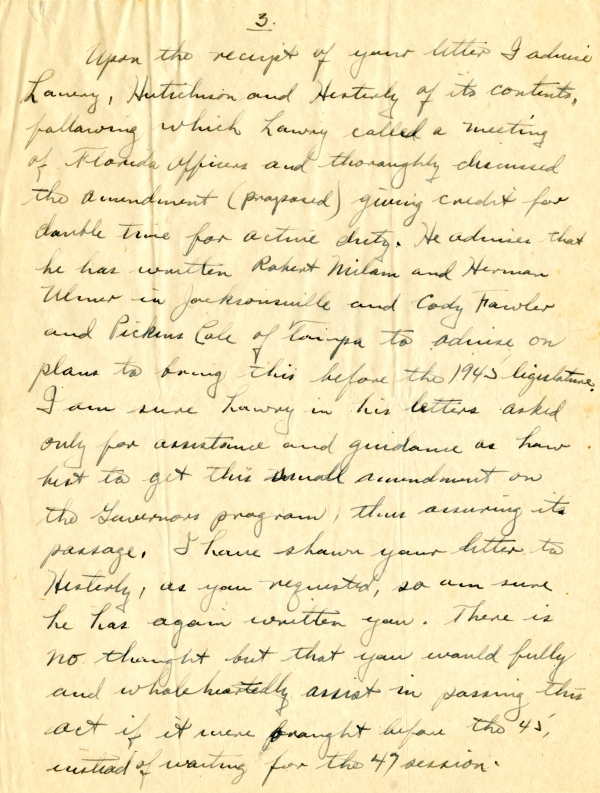 3.
Upon the receipt of your letter I advise
Lawry, Hutchison and Hesterly of its contents,
following which Lawry called a meeting
of Florida officers and thoroughly discussed
the amendment (proposed) giving credit for
double time for active duty. He advises that
he has written Robert Milam and Herman
Ulmer in Jacksonville and Cody Fowler
and Pickens Cole of Tampa to advise on
plans to bring this before the 1945 legislature.
I am sure Lawry in his letters asked
only for assistance and guidance as how
best to get this small amendment on
the Governors program, thus assuring its
passage. I have shown your letter to
Hesterly, as you requested, so am sure
he has again written you. There is
no thought but that you would fully
and wholeheartedly assist in passing this
act if it were brought before the 45,
instead of waiting for the 47 session.